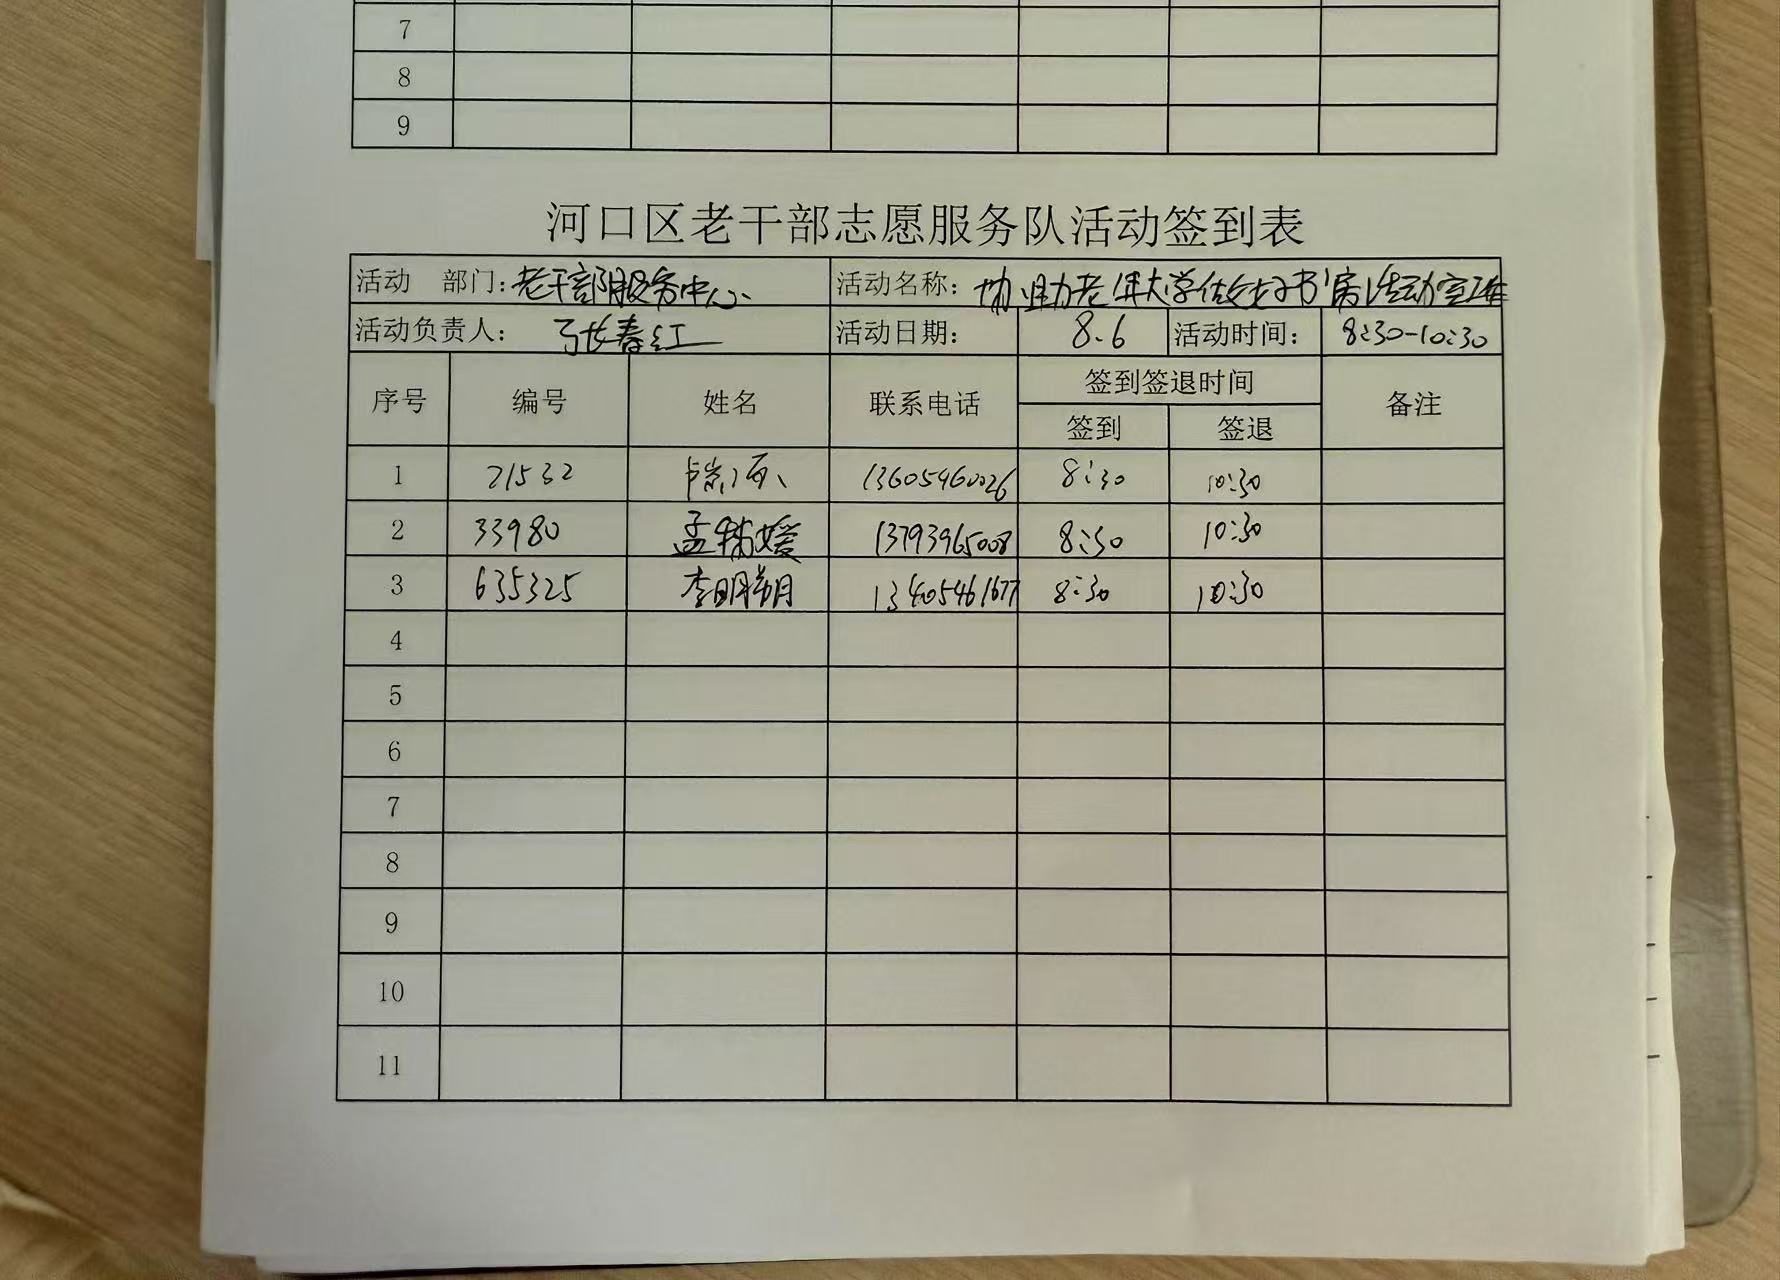 7
8
9
河口区老干部志愿服务队活动签到表
活动 部门：老干部服务中心 活动名称：协助老年大学做好书房活动室工作
活动负责人： 张春红 活动日期： 8.6 活动时间： 8:30-10:30
序号 编号 姓名 联系电话 签到签退时间 备注
签到 签退
1 21532 13605460026 8:30 10:30
2 33980 孟 媛 13793965008 8:30 10:30
3 635325 李明朔 13405461677 8:30 10:30
4
5
6
7
8
9
10
11